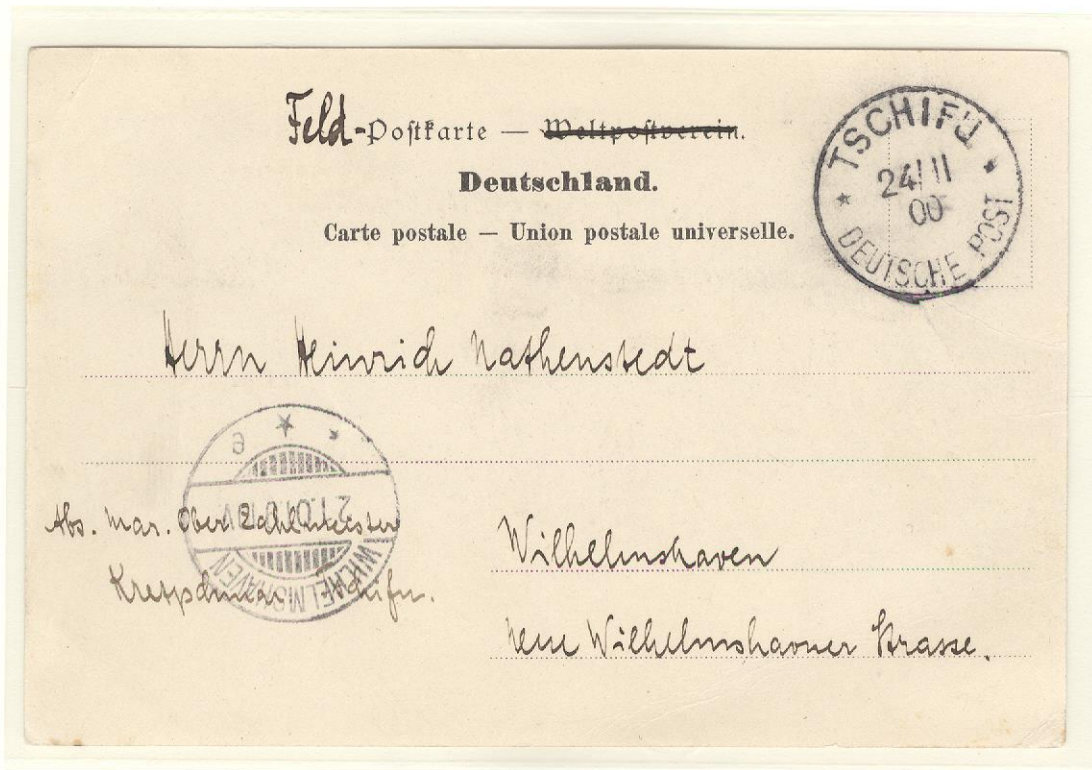 Feld-Postkarte — Weltpostverein.
Deutschland.
Carte postale — Union postale universelle.
TSCHIFU
24/11
00
DEUTSCHE POST
Herrn Heinrich Nathenstedt
WILHELMSHAVEN
Abs. Mar. Ober Zahlmeister
Tschifu.
Wilhelmshaven
Neue Wilhelmshavner Strasse.